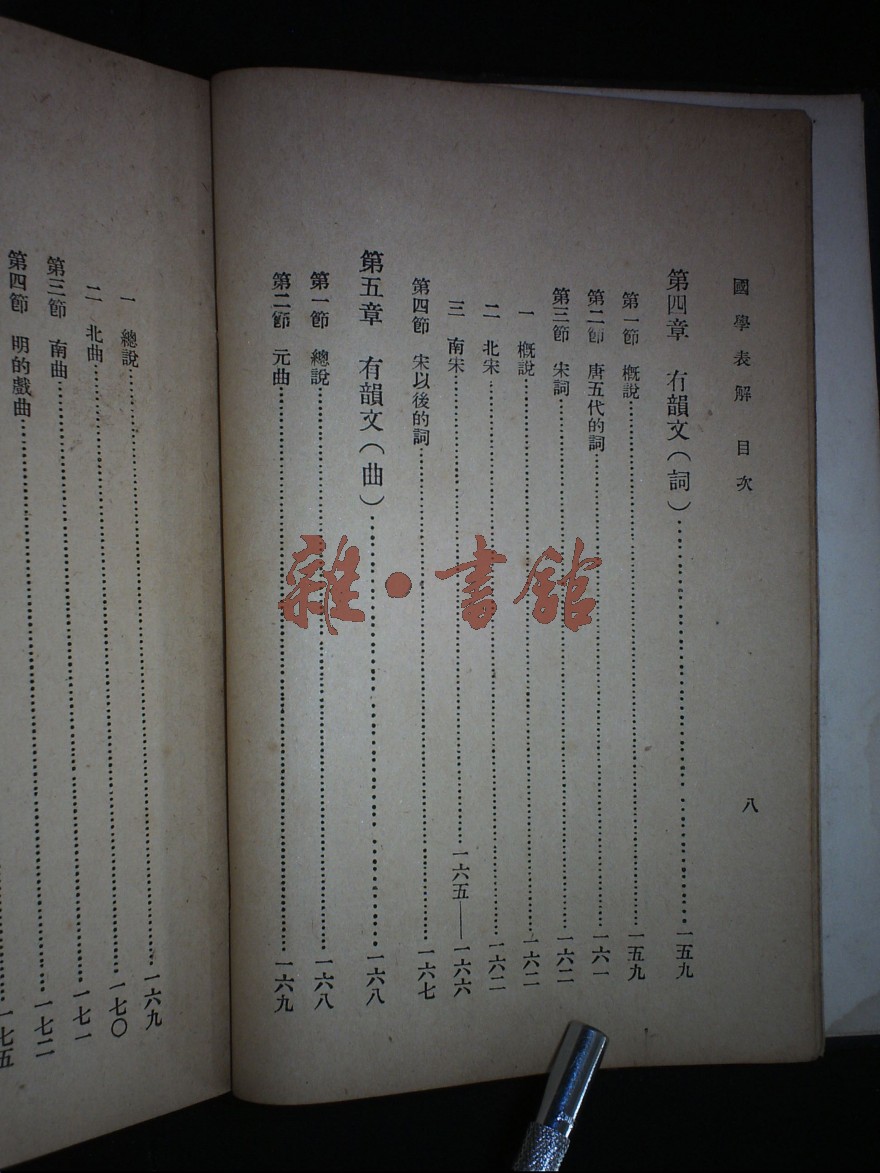 國學表解 目次 八
第四章 有韻文(詞)……一五九
第一節 槪說……一五九
第二節 唐五代的詞……一六一
第三節 宋詞……一六二
一 槪說……一六二
二 北宋……一六二
三 南宋……一六五——一六六
第四節 宋以後的詞……一六七
第五章 有韻文(曲)……一六八
第一節 總說……一六八
第二節 元曲……一六九
一 總說……一六九
二 北曲……一七〇
第三節 南曲……一七一
第四節 明的戲曲……一七二
一七五
雜·書館